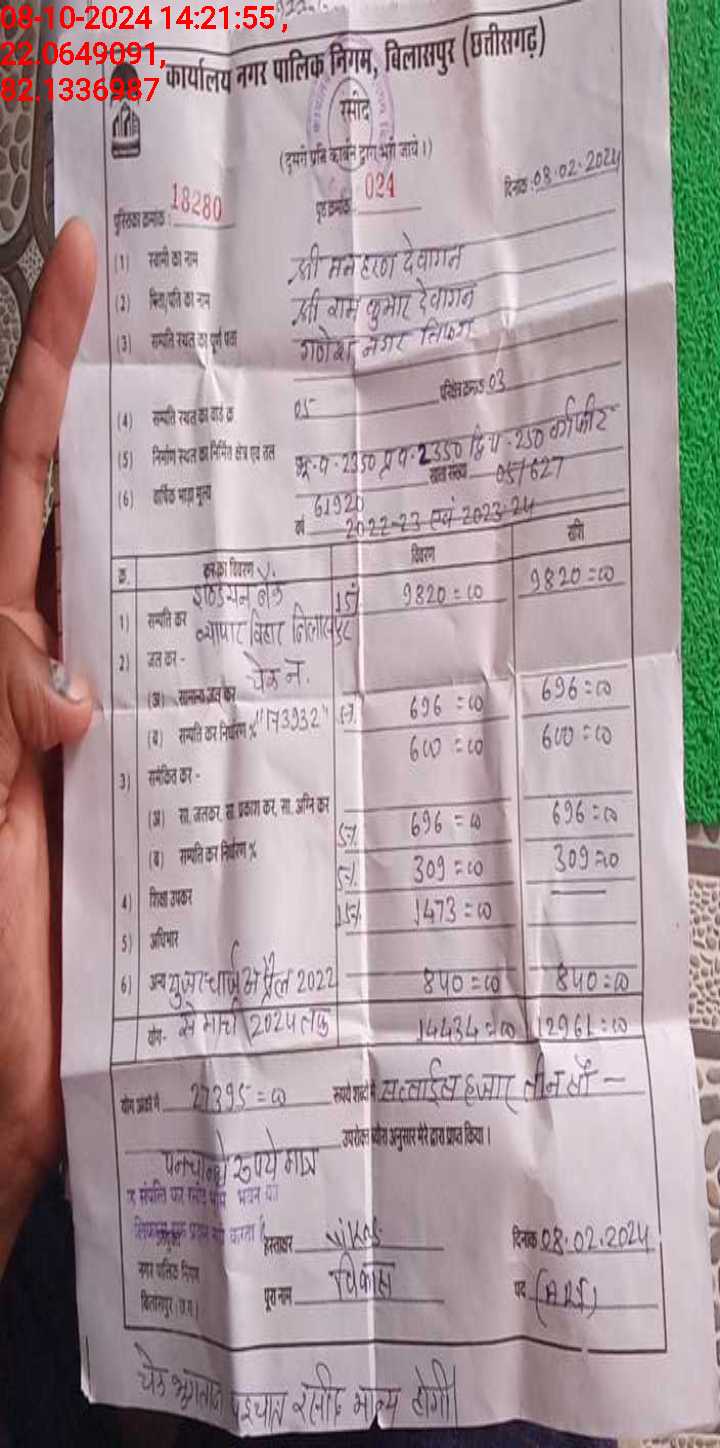 08-10-2024 14:21:55 ,
22.0649091,
82.1336987
कार्यालय नगर पालिक निगम, बिलासपुर (छत्तीसगढ़)
रसीद
(दूसरी प्रति कार्बन द्वारा भरी जाये।)
पुस्तिका क्रमांक : 18280 पृष्ठ क्रमांक 024 दिनांक : 08.02.2024
(1) स्वामी का नाम श्री मनहरण देवांगन
(2) पिता/पति का नाम श्री राम कुमार देवांगन
(3) सम्पत्ति स्थल का पूर्ण पता गणेश नगर
(4) सम्पत्ति स्थल का वार्ड क्र 05 03
(5) निर्माण स्थल का निर्मित क्षेत्र एवं तल भू.प. 2350 प्र.प. 2350 द्वि प. 250 वर्गफीट
(6) वार्षिक भाड़ा मूल्य 61920 05/627
वर्ष 2022-23 एवं 2023-24
क्र. कर का विवरण विवरण राशि
इण्डियन बैंक
1) सम्पत्ति कर 15% 9820=00 9820=00
व्यापार विहार बिलासपुर
2) जल कर - चेक नं.
(अ) सामान्य जल कर 696=00 696=00
(ब) सम्पत्ति कर निर्धारण % "173932" 600=00 600=00
3) समेकित कर -
(अ) सा. जलकर, सा. प्रकाश कर, सा. अग्नि कर 5% 696=00 696=00
(ब) सम्पत्ति कर निर्धारण % 5% 309=00 309=00
4) शिक्षा उपकर 15% 1473=00
5) अधिभार
6) अन्य युजरचार्ज अप्रैल 2022 840=00 840=00
योग- से मार्च 2024 तक 14434=00 12961=00
योग अंकों में 27395=00 रूपये शब्दों में सत्ताईस हजार तीन सौ -
पनचानबे रूपये मात्र उपरोक्त ब्योरा अनुसार मेरे द्वारा प्राप्त किया।
हस्ताक्षर Vikas दिनांक 08.02.2024
नगर पालिक निगम
बिलासपुर (छ.ग.) पूरा नाम विकास पद (ARI)
चेक भुगतान पश्चात रसीद मान्य होगी।